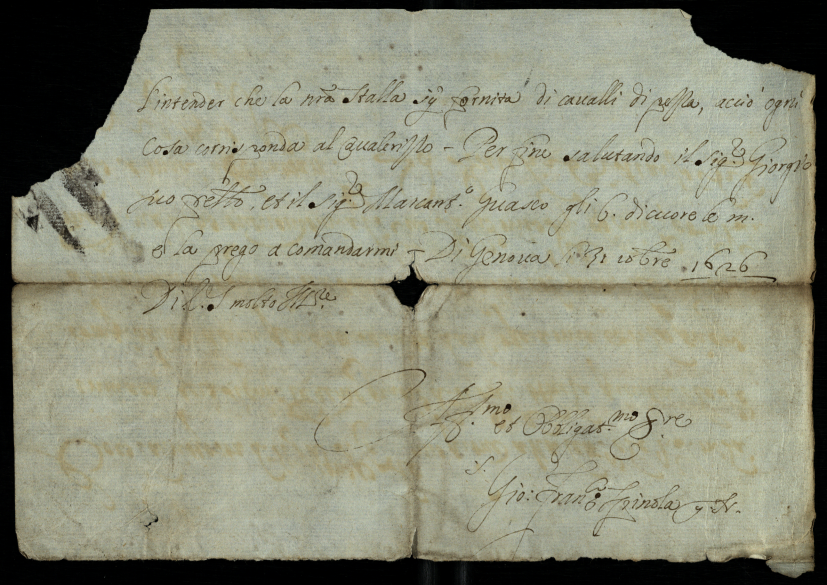 l'intender che la nra stalla sij fornita di cavalli di posta, acciò ogni
cosa corrisponda al Per fine salutando il Sigre Giorgio
suo et il Sigre Marcant.o Guasco gli b. di cuore le m.
e la prego a comandarmi - Di Genova li 31 10bre 1626
Di V. S. molto Illre
Aff.mo et Obligat.mo S.re
Gio: Fran.co Spinola